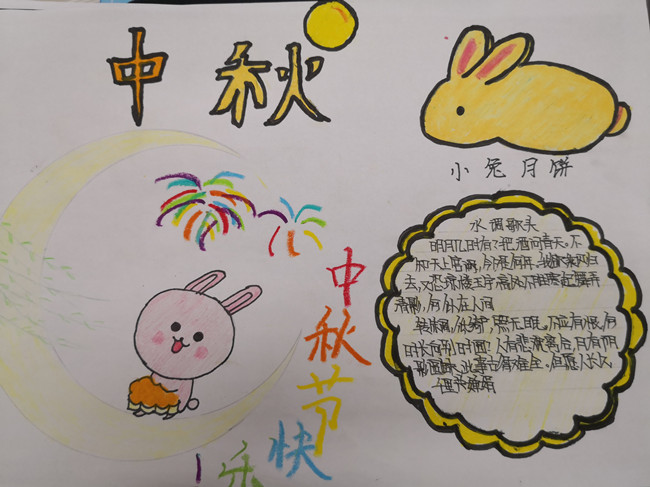 中秋
小兔月饼
中秋节快乐
水调歌头
明月几时有?把酒问青天。不
知天上宫阙,今夕是何年。我欲乘风归
去,又恐琼楼玉宇,高处不胜寒起舞弄
清影,何似在人间
转朱阁,低绮户,照无眠。不应有恨,何
时长向别时圆?人有悲欢离合,月有阴
晴圆缺,此事古难全。但愿人长久
婵娟